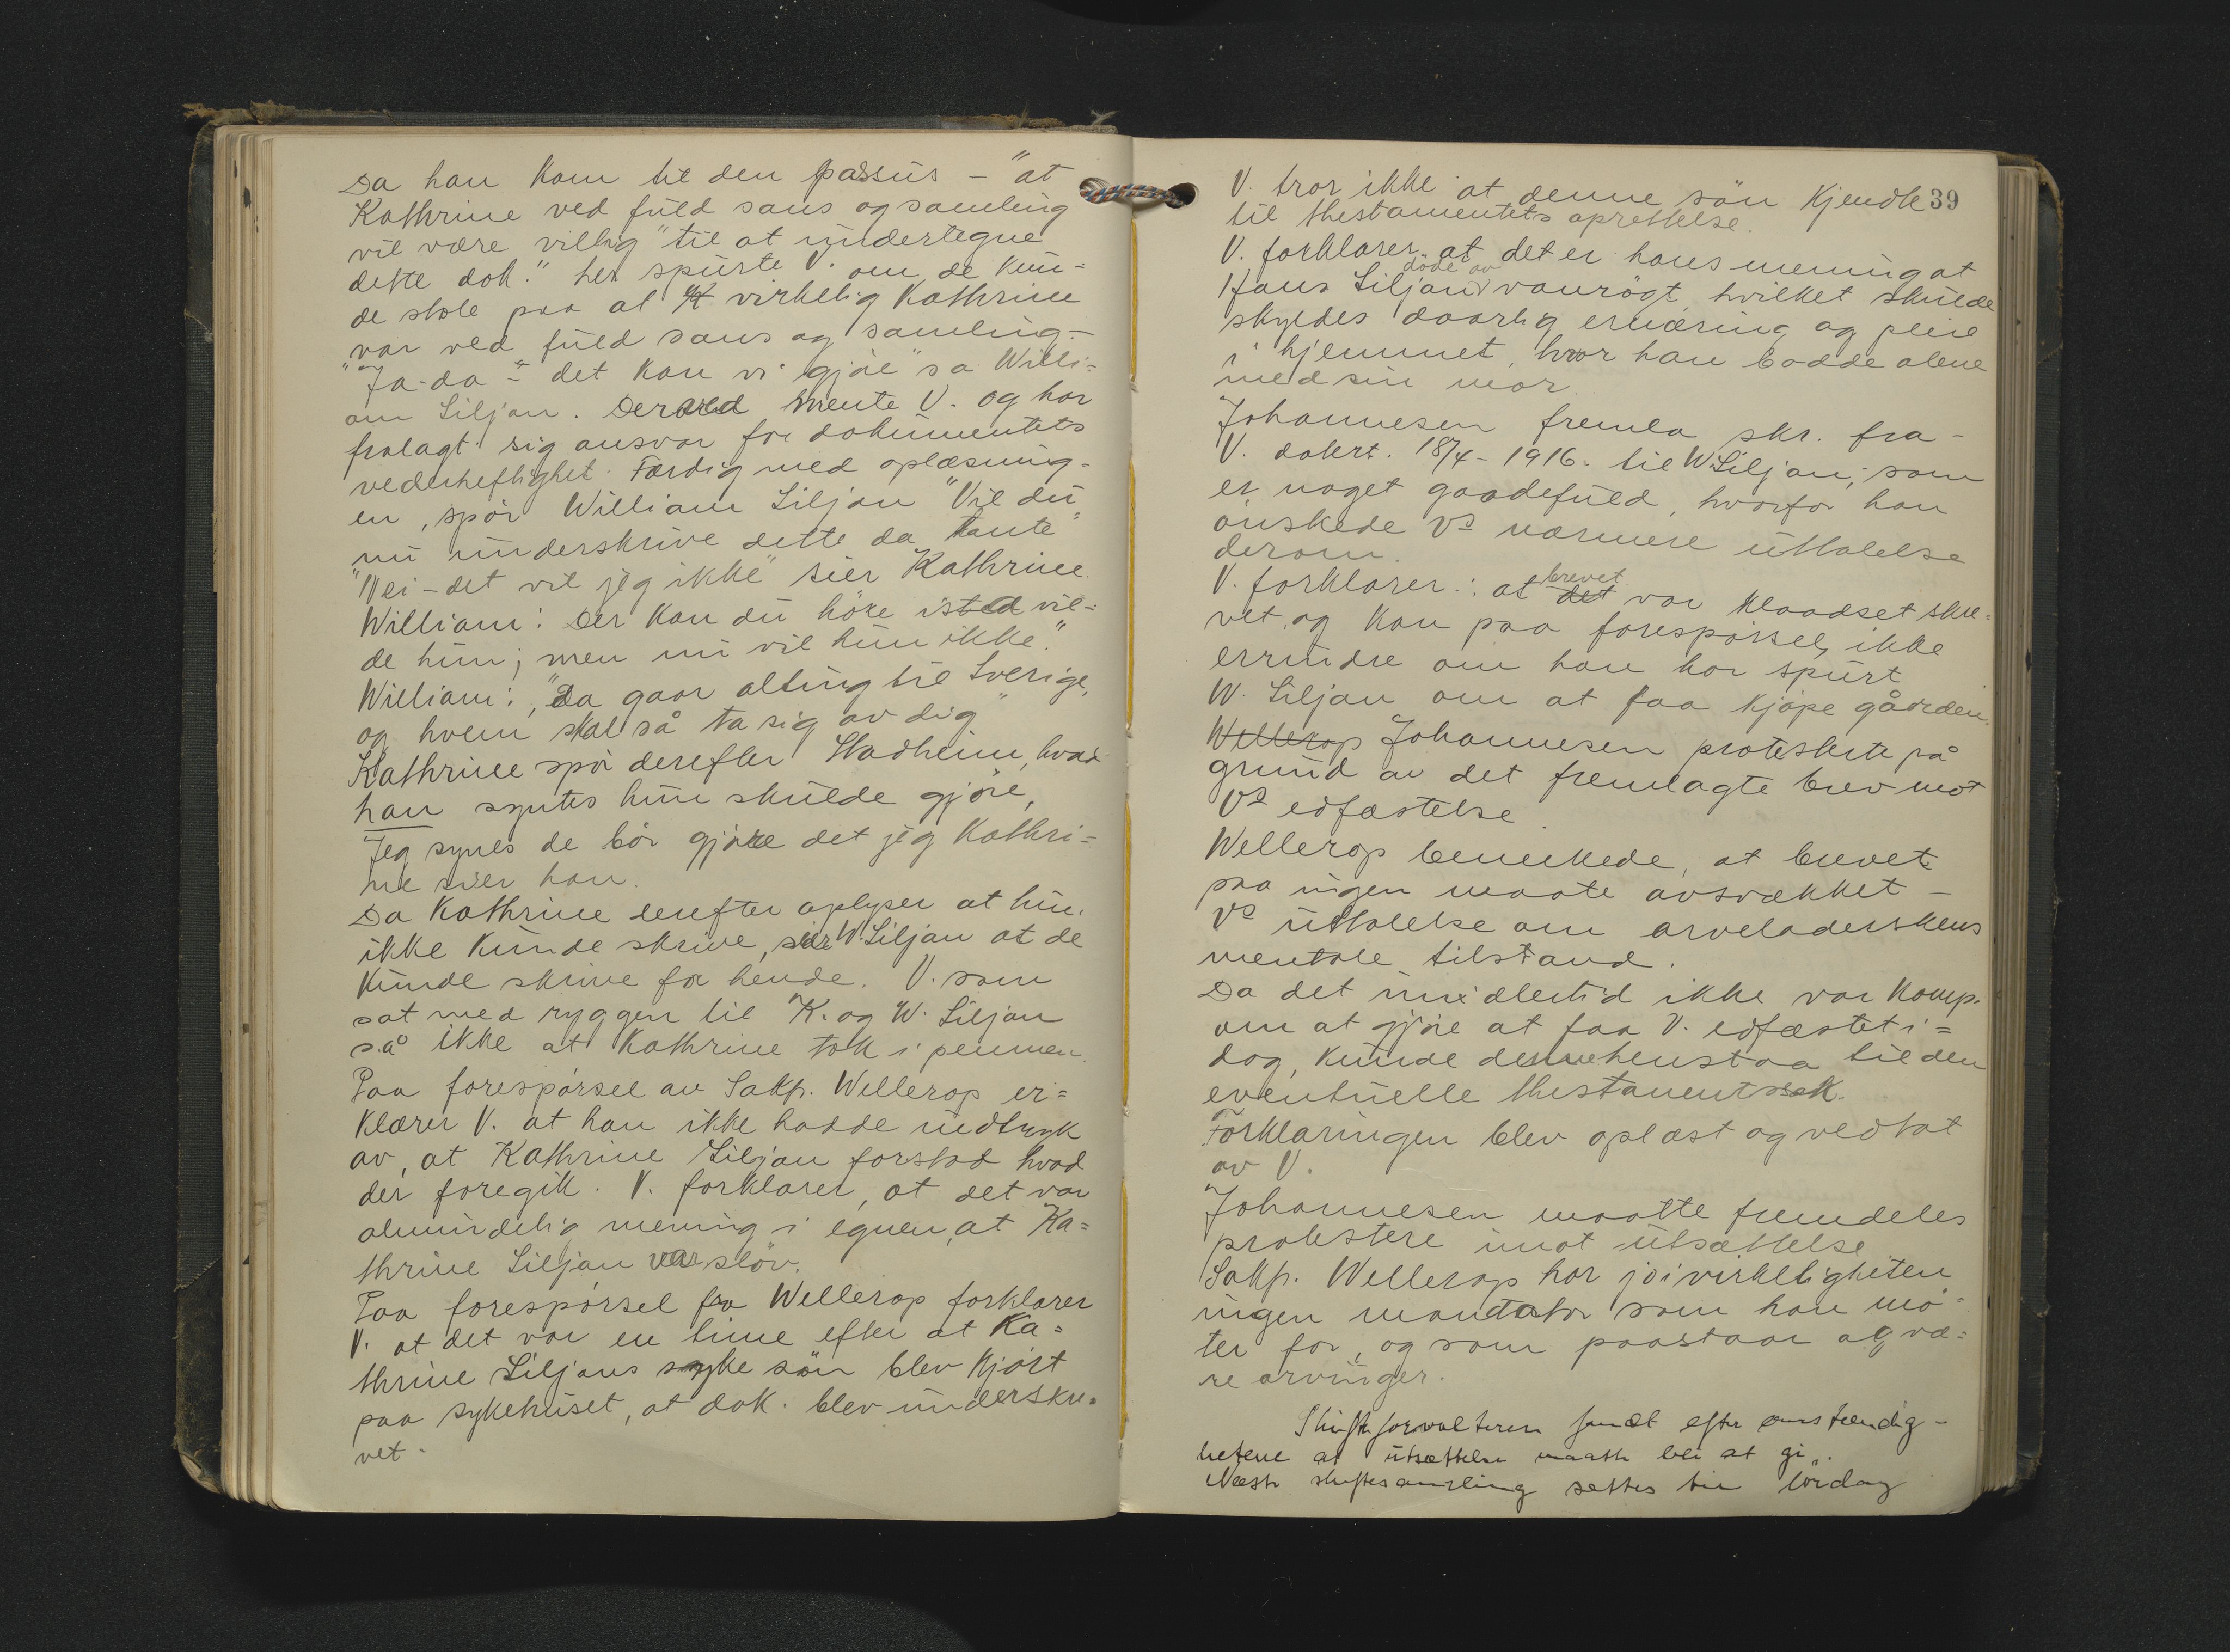 Da han kom til den passus – "at
Kathrine ved fuld sans og samling
vil være villig" til at undertegne
dette dok." her spurte V. om de kun-
de stole paa at K virkelig Kathrine
var ved fuld sans og samling. –
"Ja-da" – det kan vi gjöre" sa Willi-
am Liljan. Derved mente V. og har
fralagt sig ansvar for dokumentets
vederheftighet. Færdig med oplæsning-
en, spör William Liljan "Vil du
nu underskrive dette da tante"
"Nei – det vil jeg ikke" sier Kathrine.
William: Der kan du höre isted vil-
de hun; men nu vil hun ikke."
William: "Da gaar alting til Sverige,
og hvem skal så ta sig av dig"
Kathrine spör derefter Stadheim, hvad
han syntes hun skulde gjöre,
Jeg synes de bör gjöre det jeg Kathri-
ne sier han.
Da Kathrine derefter oplyser at hun
ikke kunde skrive, sier W. Liljan at de
kunde skrive for hende. V. som
sat med ryggen til K. og W. Liljan
så ikke at Kathrine tok i pennen.
Paa forespörsel av Sakf. Wellerop er-
klærer V. at han ikke hadde indtryk
av, at Kathrine Liljan forstod hvad
der foregik. V. forklarer, at det var
almindelig mening i egnen, at Ka-
thrine Liljan var slöv.
Paa forespörsel fra Wellerop forklarer
V. at det var en time efter at Ka-
thrine Liljans syke sön blev kjört
paa sykehuset, at dok. blev underskre-
vet.
39
V. tror ikke at denne sön kjendte
til thestamentets oprettelse.
V. forklarer, at det er hans mening at
Hans Liljan döde av vanrögt, hvilket skulde
skyldes daarlig ernæring og pleie
i hjemmet, hvor han bodde alene
med sin mor.
Johannesen fremla skr. fra –
V. datert. 18/4 – 1916. til W. Liljan, som
er noget gaadefuld, hvorfor han
önskede Vs nærmere uttalelse
derom.
V. forklarer: at det brevet var klaadset skre-
vet, og kan paa forespörsel, ikke
errindre om han har spurt
W. Liljan om at faa kjöpe gården.
Wellerop Johannesen protesterte på
grund av det fremlagte brev mot
Vs edfæstelse.
Wellerop bemerkede, at brevet
paa ingen maate avsvækket –
Vs uttalelse om arveladerskens
mentale tilstand.
Da det imidlertid ikke var komp.
om at gjöre at faa V. edfæstet i-
dag, kunde denne henstaa til den
eventuelle thestamentssak.
Forklaringen blev oplæst og vedtat
av V.
Johannesen maatte fremdeles
protestere imot utsættelse
Sakf. Wellerop har jo i virkeligheten
ingen mandator som han mö-
ter for, og som paastaar at væ-
re arvinger.
Skifteforvalteren fandt efter omstændig-
hetene at utsættelse maatte bli at gi.
Næste skiftesamling settes til lördag